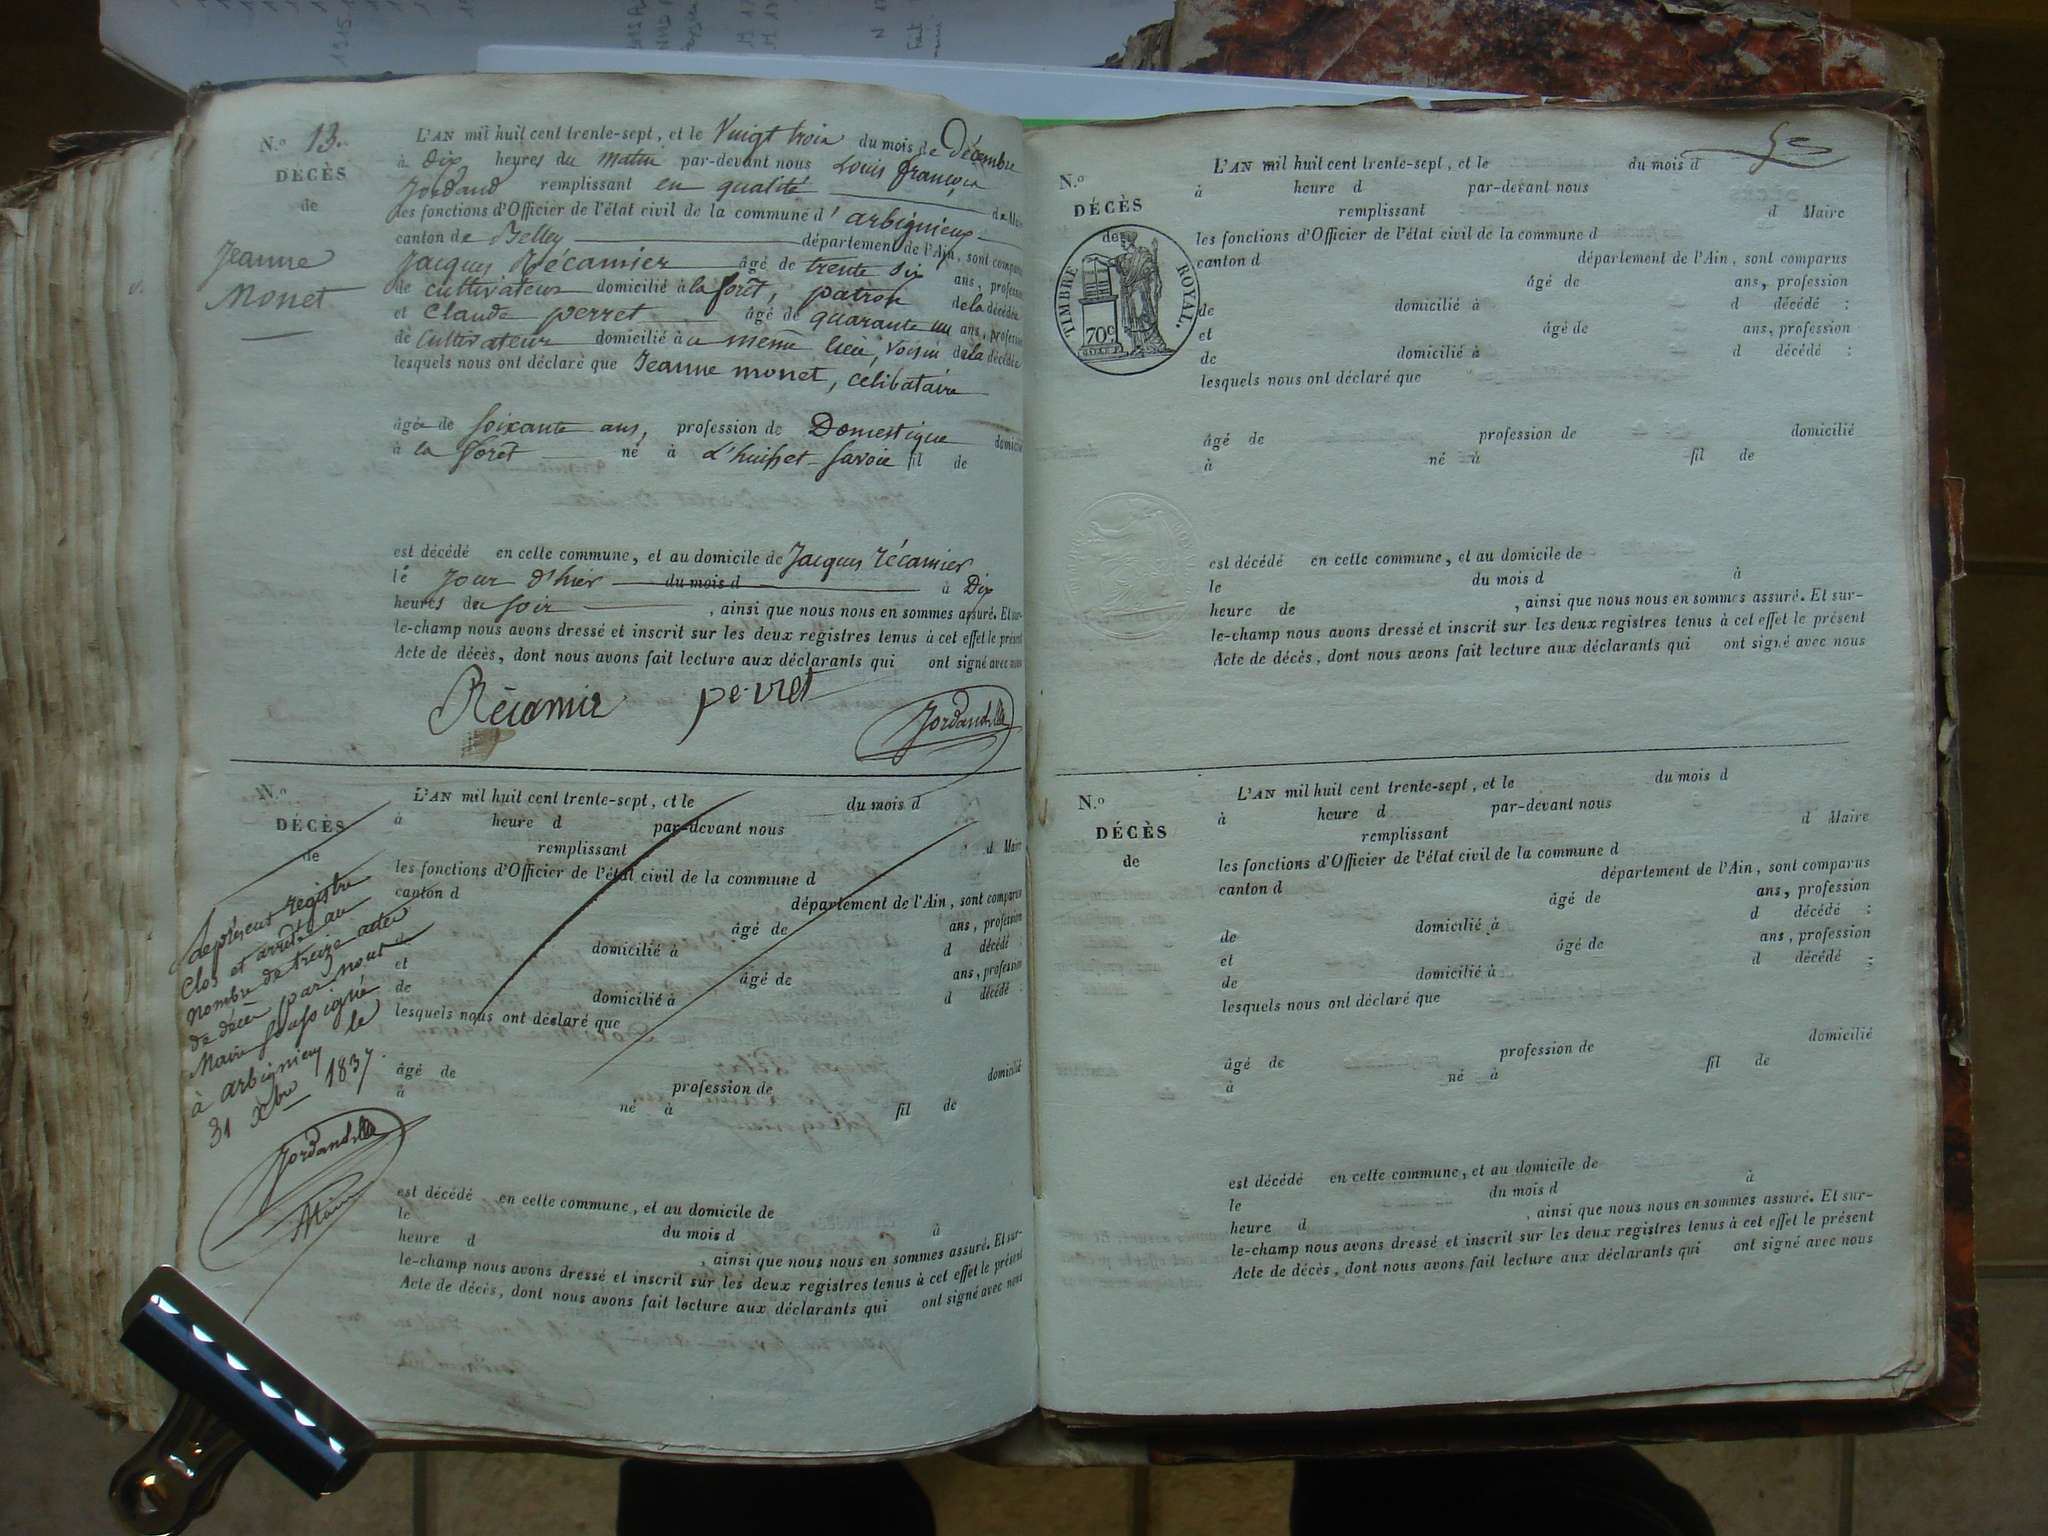 N.° 13.
DÉCÈS
de
Jeanne
Monet
L'AN mil huit cent trente-sept, et le Vingt trois du mois de Décembre
à Dix heures du Matin par-devant nous Louis françois
Jordand remplissant en qualité de Maire
les fonctions d'Officier de l'état civil de la commune d'arbignieux
canton de Belley département de l'Ain, sont comparus
Jacques Récamier âgé de trente six ans, profession
de cultivateur domicilié à la forêt, patron de la décédée
et Claude perret âgé de quarante un ans, profession
de Cultivateur domicilié à u même lieu, voisin de la décédée
lesquels nous ont déclaré que Jeanne monet, célibataire
âgée de soixante ans, profession de Domestique domicilié
à la forêt né à L'huisset Savoie fil de
est décédé en cette commune, et au domicile de Jacques récamier
le jour d'hier du mois d à Dix
heures du soir , ainsi que nous nous en sommes assuré. Et sur-
le-champ nous avons dressé et inscrit sur les deux registres tenus à cet effet le présent
Acte de décès, dont nous avons fait lecture aux déclarants qui ont signé avec nous
Récamier perret Jordand
N.°
DÉCÈS
de
L'AN mil huit cent trente-sept, et le du mois d
à heure d par-devant nous
remplissant d Maire
les fonctions d'Officier de l'état civil de la commune d
canton d département de l'Ain, sont comparus
âgé de ans, profession
de domicilié à d décédé :
et âgé de ans, profession
de domicilié à d décédé :
lesquels nous ont déclaré que
âgé de profession de domicilié
à né à fil de
est décédé en cette commune, et au domicile de
le du mois d à
heure d , ainsi que nous nous en sommes assuré. Et sur-
le-champ nous avons dressé et inscrit sur les deux registres tenus à cet effet le présent
Acte de décès, dont nous avons fait lecture aux déclarants qui ont signé avec nous
Le présent registre
Clos et arrêté au
nombre de treize actes
de décès par nous
Maire soussigné
à arbignieu le
31 Xbre 1837.
Jordand
Maire
N.°
DÉCÈS
de
TIMBRE ROYAL.
70c
L'AN mil huit cent trente-sept, et le du mois d
à heure d par-devant nous
remplissant d Maire
les fonctions d'Officier de l'état civil de la commune d
canton d département de l'Ain, sont comparus
âgé de ans, profession
de domicilié à d décédé :
et âgé de ans, profession
de domicilié à d décédé :
lesquels nous ont déclaré que
âgé de profession de domicilié
à né à fil de
est décédé en cette commune, et au domicile de
le du mois d à
heure de , ainsi que nous nous en sommes assuré. Et sur-
le-champ nous avons dressé et inscrit sur les deux registres tenus à cet effet le présent
Acte de décès, dont nous avons fait lecture aux déclarants qui ont signé avec nous
N.°
DÉCÈS
de
L'AN mil huit cent trente-sept, et le du mois d
à heure d par-devant nous
remplissant d Maire
les fonctions d'Officier de l'état civil de la commune d
canton d département de l'Ain, sont comparus
âgé de ans, profession
de domicilié à d décédé :
et âgé de ans, profession
de domicilié à d décédé :
lesquels nous ont déclaré que
âgé de profession de domicilié
à né à fil de
est décédé en cette commune, et au domicile de
le du mois d à
heure d , ainsi que nous nous en sommes assuré. Et sur-
le-champ nous avons dressé et inscrit sur les deux registres tenus à cet effet le présent
Acte de décès, dont nous avons fait lecture aux déclarants qui ont signé avec nous